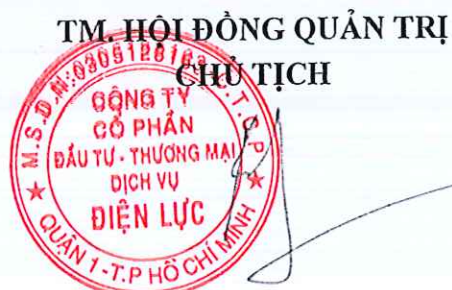 TM. HỘI ĐỒNG QUẢN TRỊ
CHỦ TỊCH
M.S.D.N:
C.T.C.P
CÔNG TY
CỔ PHẦN
ĐẦU TƯ - THƯƠNG MẠI
DỊCH VỤ
ĐIỆN LỰC
QUẬN 1 - T.P HỒ CHÍ MINH